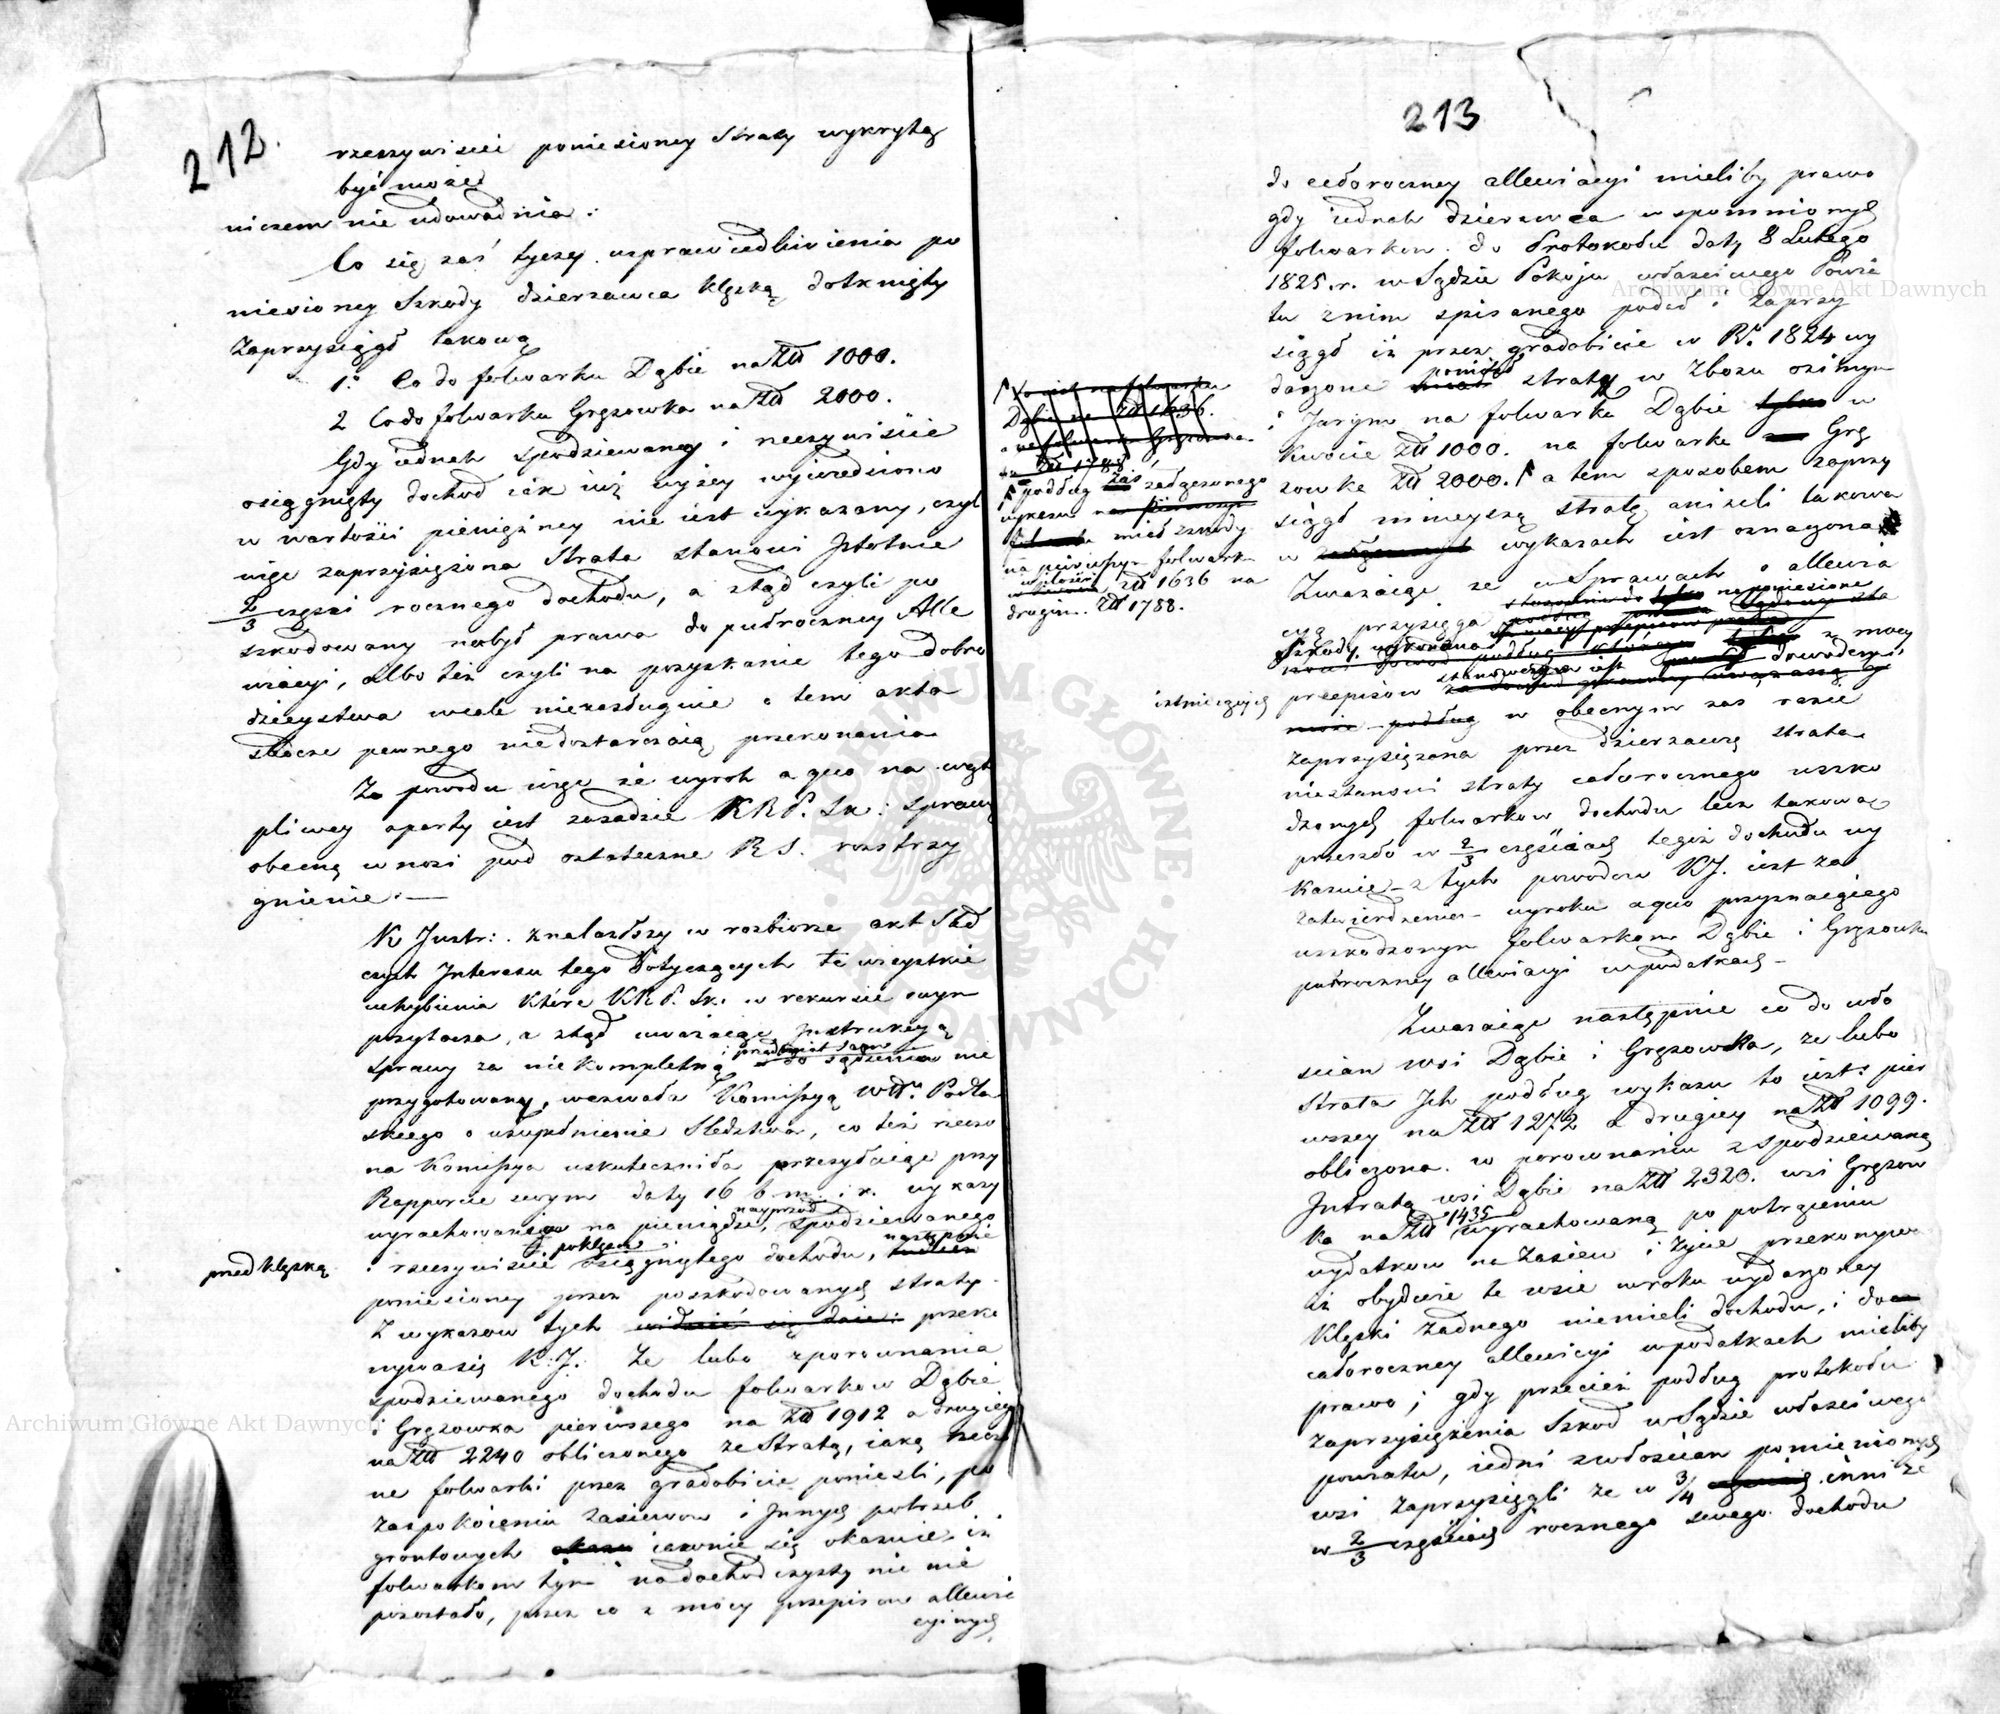 212.
rzeczywiscie poniesioney Straty wykrytą
być może
niczem nie udowadnia.
Co się zaś tyczy usprawiedliwienia po
niesioney Szkody dzierzawca klęską dotknięty
Zaprzysiągł takową
1º Co do folwarku Dąbie na Złł 1000.
2 Co do folwarku Gręzowka na Złł 2000.
Gdy iednak spodziewany i rzeczywiście
osiągnięty dochod iak iuż wyżey wywiedziono
w wartości pienięźney nie iest wykazany, czyl
więc zaprzysiężona Strata stanowi Istotnie
2/3 części rocznego dochodu, a ztąd czyli po
szkodowany nabył prawa do pułroczney Alle
wiacyi, albo też czyli na pozyskanie tego dobro
dzieystwa wcale niezasługuie o tem akta
śledcze pewnego niedostarczaią przekonania
Z powodu więc że wyrok a quo na wąt
pliwey oparty iest zasadzie KRP. Sk: sprawę
obecną wnosi pod ostateczne RS. rozstrzy
gnienie. —
K Justr: znalazłszy w rozbiorze akt Sled
czych Interesu tego dotyczących te wszystkie
uchybienia które KRP. Sk. w rekursie swym
przytacza, a ztąd uważaiąc Instrukcyą
i przedmiot sam
sprawy za niekompletną do sądzenia nie
przygotowany, wezwała Kommissyą Wdł Podla
skiego o uzupełnienie Sledztwa, co też rzeczo
na Komissya uskuteczniła przesyłaiąc przy
Rapporcie swym daty 16 b m. i r. wykazy
nayprzód
wyrachowania na pieniądze, spodziewanego
po klęsce następnie
przed klęską
i rzeczywiscie osiągniętego dochodu,
poniesioney przez poszkodowanych straty.
Z wykazow tych widzieć się daie: przeko
nywa się K: J: Że lubo z porownania
spodziewanego dochodu folwarkow Dąbie
i Gręzowka pierwszego na Złł 1912 a drugiego
na Złł 2240 obliczonego ze Stratą, iaką rzeczo
ne folwarki przez gradobicie poniesli, po
zaspokoieniu zasiewow i Innych potrzeb
grontowych iawnie się okazuie, iż
folwarkom tym na dochod czysty nic nie
pozostało, przez co z mocy przepisow allewia
cyinych
213
do całoroczney allewiacyi mieliby prawo
gdy iednak dzierzawca wspomnionych
folwarkow do Protokołu daty 8 Lutego
1825. r. w Sądzie Pokoju właściwego Powia
tu z nim spisanego podał i zaprzy
siągł iż przez gradobicie w R. 1824 wy
poniósł
darzone stratę w Zbożu ozimym
i Jarym na folwarku Dąbie w
kwocie Złł 1000. na folwarke Grę
zowke Złł 2000. a tem sposobem zaprzy
siągł mnieyszą stratę aniżeli takowa
w wykazach iest oznaczona
Dąbie na Złł 1636.
Złł 1788
podług zaś załączonego
wykazu
miał szkody
na pierwszym folwark
w ilości Złł 1636 na
drugim Złł 1788.
Zważaiąc że w Sprawach o allewia
cyą przysięga
Szkody, wykonana
z mocy
przepisów iest dowodem,
istnieiących
w obecnym zas razie
zaprzysiężona przez dzierzawcę strata
niestanowi straty całorocznego uszko
dzonych folwarkow dochodu lecz takowa
przeszło w 2/3 częściach tegoż dochodu wy
kazuie — z tych powodow KJ. iest za
zatwierdzeniem wyroku a quo przyznaiącego
uszkodzonym folwarkom Dąbie i Gręzowka
pułroczney allewiacyi w podatkach —
Zwazaiąc następnie co do wło
scian wsi Dąbie i Gręzowka, że lubo
strata Ich podług wykazu to iest: pier
wszey na Złł 1272 a drugiey na Złł 1099.
obliczona w porownaniu z spodziewaną
Intratą wsi Dąbie na Złł 2320. wsi Gręzow
ka na Złł 1435 wyrachowaną po potrąceniu
wydatkow na Zasiew i życie przekonywa
iż obydwie te wsie w roku wydarzoney
Klęski żadnego niemieli dochodu, i do
całoroczney allewiacyi w podatkach mieliby
prawo; gdy przecież podług protokołu
zaprzysiężenia Szkod w Sądzie właściwego
powiatu, iedni z włoscian pomienionych
wsi zaprzysięgli że w 3/4 inni że
w 2/3 częściach rocznego swego dochodu
Archiwum Główne Akt Dawnych
Archiwum Główne Akt Dawnych
ARCHIWUM GŁÓWNE AKT DAWNYCH